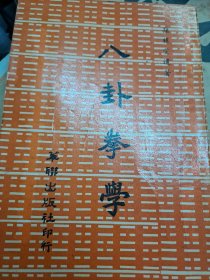 八卦拳學
華聯出版社印行